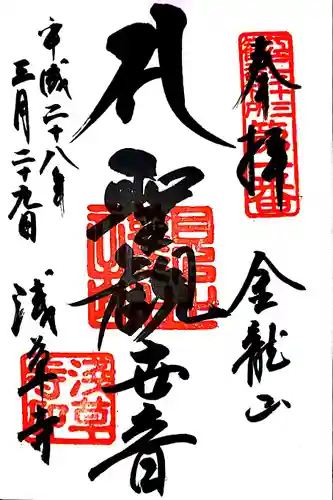 奉拝
金龍山
聖観世音
平成二十八年
三月二十九日
浅草寺